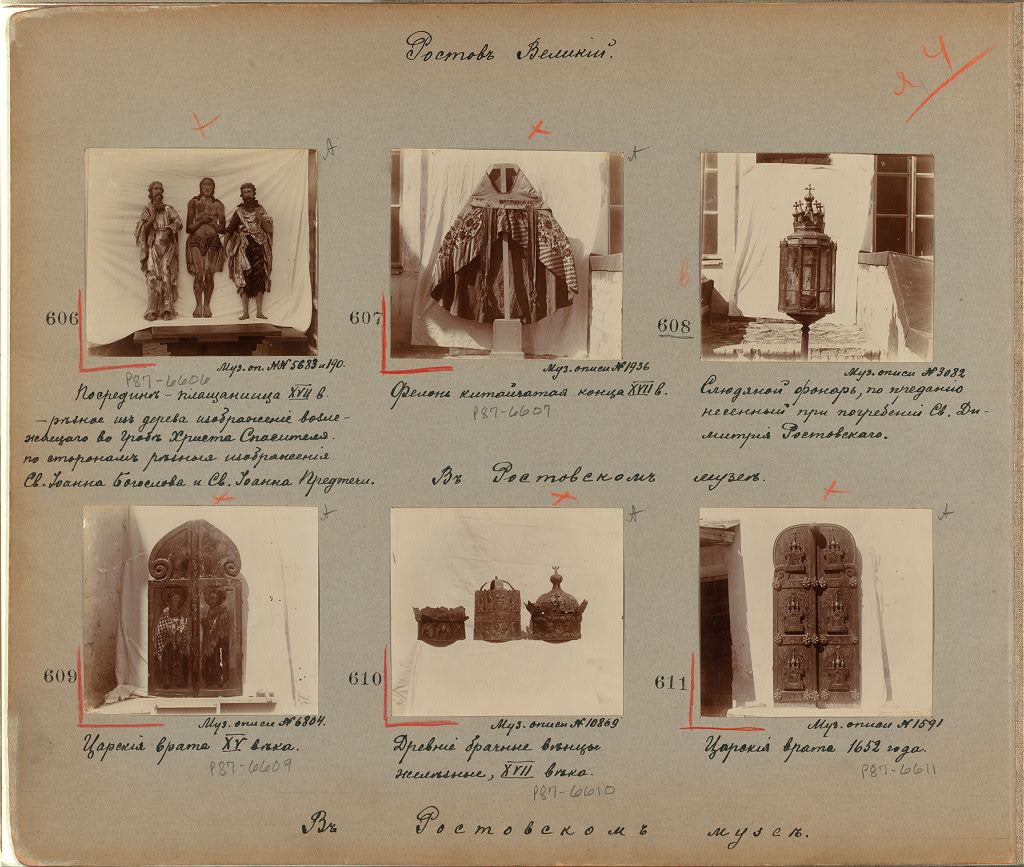 Ростовъ Великій.
4
A
A
606
607
608
Муз. оп. №№ 5683 и 190.
Муз. описи № 1936
Муз. описи № 3082
P87-6606
Посрединѣ – плащаница XVII в.
– рѣзное изъ дерева изображеніе возле-
жащаго во гробѣ Христа Спасителя.
по сторонамъ рѣзныя изображенія
Св. Іоанна Богослова и Св. Іоанна Предтечи.
Фелонь китайчатая конца XVII в.
P87-6607
Слюдяной фонарь, по преданію
несенный при погребеніи Св. Ди-
митрія Ростовскаго.
Въ Ростовскомъ музеѣ.
A
A
A
609
610
611
Муз. описи № 6804.
Муз. описи № 10869
Муз. описи № 1591
Царскія врата XV вѣка.
P87-6609
Древніе брачные вѣнцы
желѣзные, XVII вѣка.
P87-6610
Царскія врата 1652 года.
P87-6611
Въ Ростовскомъ музеѣ.